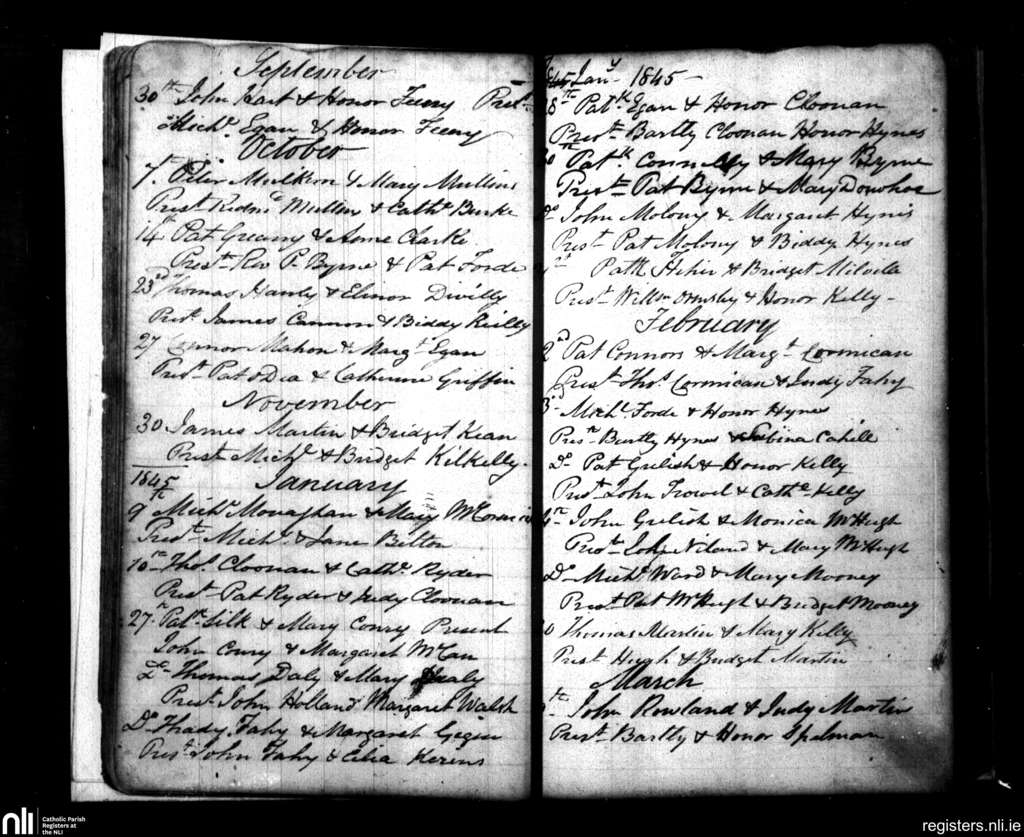 September
30th John Hart & Honor Feeny Prest
Michl Egan & Honor Feeny
October
7th Peter Mulkern & Mary Mullins
Prest Redmd Mullins & Cathe Burke
14th Pat Greany & Anne Clarke
Prest Rev P. Byrne & Pat Forde
23rd Thomas Hanly & Elinor Divilly
Prest James Cannon & Biddy Reilly
27 Connor Mahon & Margt Egan
Prest Pat oDea & Catherine Griffin
November
30 James Martin & Bridget Kean
Prest Michl & Bridget Kilkelly.
1845 January
9th Michl Monaghan & Mary
Prest Michl & Jane Bitton
10th Thos Cloonan & Cathe Ryder
Prest Pat Ryder & Judy Cloonan
27th Patk Silk & Mary Conry Present
John Conry & Margaret McCan
Do Thomas Daly & Mary
Prest John Holland Margaret Walsh
Do Thady Fahy & Margaret
Prest John Fahy & Celia Kerins
Jany 1845
8th Patk Egan & Honor Cloonan
Prest Bartly Cloonan Honor Hynes
Patk Connolly & Mary Byrne
Prest Pat Byrne & Mary Donohoe
Do John Molony & Margaret Hynes
Prest Pat Molony & Biddy Hynes
Patk & Bridget
Prest Willm Ormsby & Honor Kelly
February
2d Pat Connors & Margt Cormican
Prest Thos Cormican & Judy Fahy
3d Michl Forde & Honor Hynes
Prest Bartly Hynes & Sabina Cahill
Do Pat Grelish & Honor Kelly
Prest John Trowel & Cathe Kelly
4th John Grelish & Monica McHugh
Prest John Niland & Mary McHugh
Do Michl Ward & Mary Mooney
Prest Pat McHugh & Bridget Mooney
Thomas Martin & Mary Kelly
Prest Hugh & Bridget Martin
March
John Rowland & Judy Martin
Prest Bartly & Honor Spelman
nli
Catholic Parish
Registers at
the NLI
registers.nli.ie